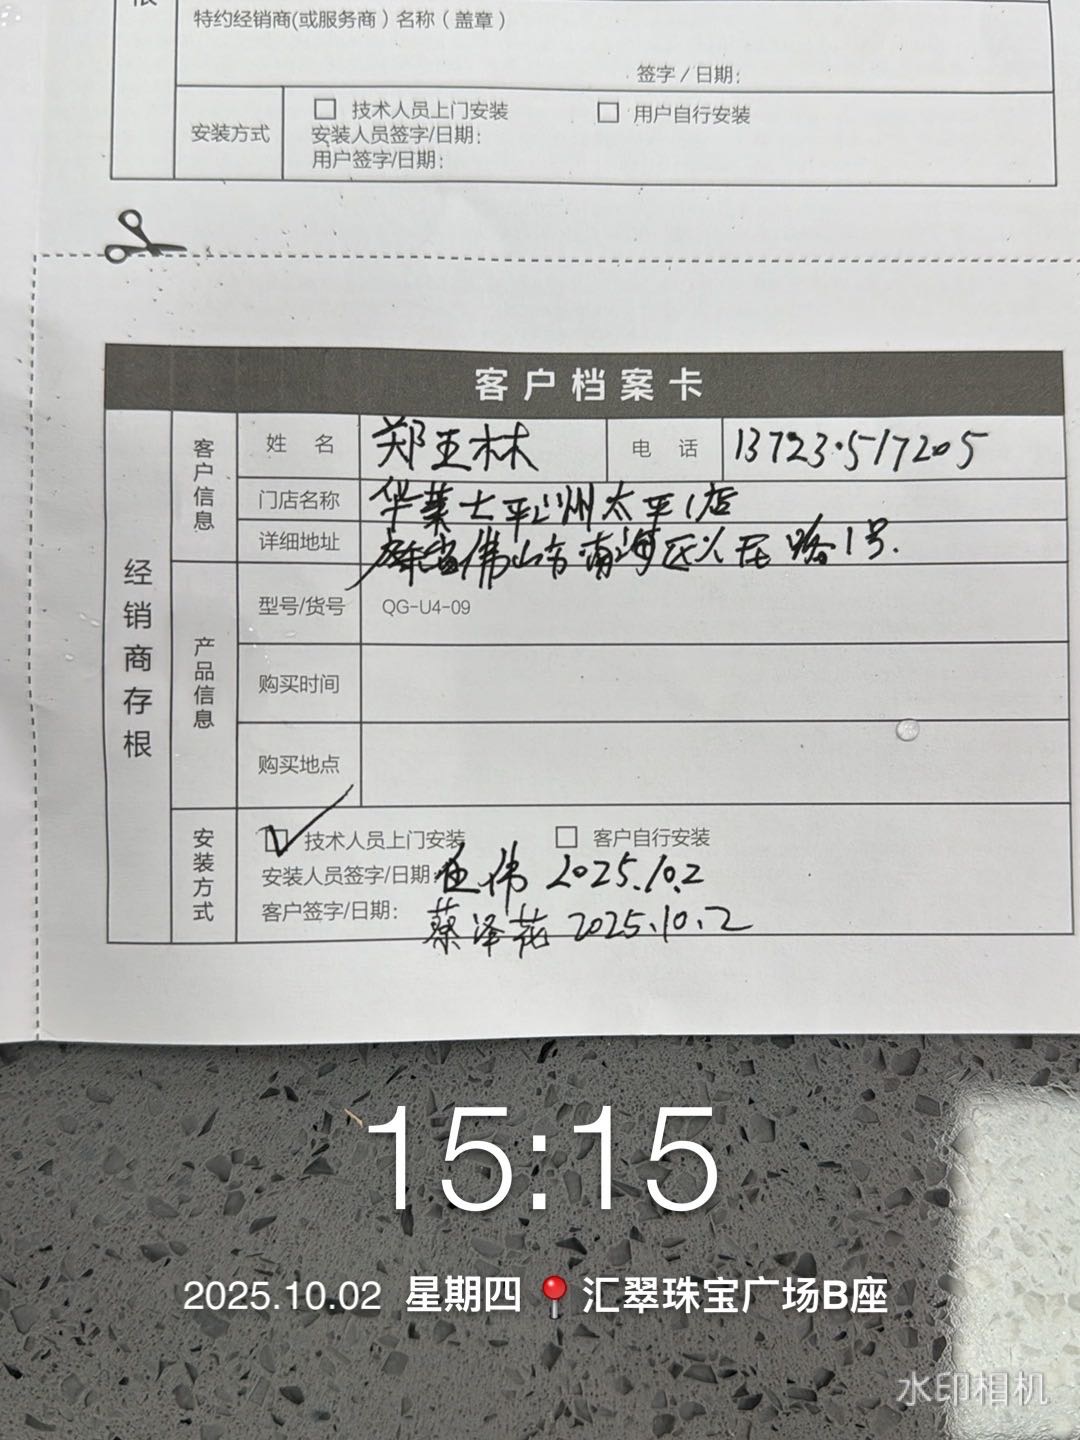 特约经销商(或服务商)名称(盖章)
签字/日期:
安装方式
技术人员上门安装
用户自行安装
安装人员签字/日期:
用户签字/日期:
客户档案卡
经销商存根
客户信息
姓名 郑玉林
电话 13723517205
门店名称 华莱士平洲太平店
详细地址 广东省佛山市南海区人民路1号.
产品信息
型号/货号 QG-U4-09
购买时间
购买地点
安装方式
技术人员上门安装
客户自行安装
安装人员签字/日期: 伟 2025.10.2
客户签字/日期: 蔡泽花 2025.10.2
15:15
2025.10.02 星期四 汇翠珠宝广场B座
水印相机